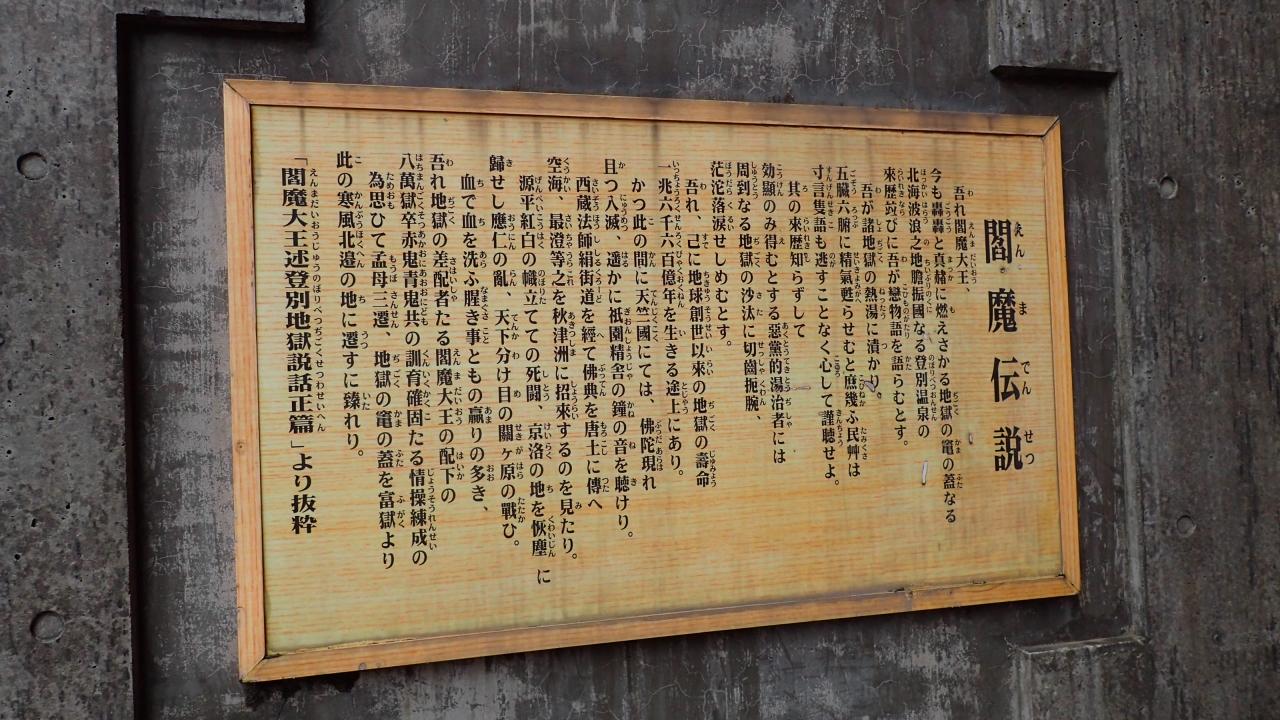 閻魔伝説
吾れ閻魔大王、
今も轟轟と真赭に燃えさかる地獄の竃の蓋なる
北海波浪之地膽振國なる登別温泉の
來歴竝びに吾が戀物語を語らむとす。
吾が諸地獄の熱湯に漬かり、
五臓六腑に精氣甦らせむと庶幾ふ民艸は
寸言隻語も逃すことなく心して謹聴せよ。
其の來歴知らずして
効顯のみ得むとする惡黨的湯治者には
周到なる地獄の沙汰に切齒扼腕、
茫沱落涙せしめむとす。
吾れ、已に地球創世以來の地獄の壽命
一兆六千六百億年を生きる途上にあり。
かつ此の間に天竺國にては、佛陀現れ
且つ入滅、遥かに祇園精舎の鐘の音を聴けり。
西蔵法師絹街道を經て佛典を唐土に傳へ
空海、最澄等之を秋津洲に招來するのを見たり。
源平紅白の幟立てての死闘、京洛の地を恢塵に
歸せし應仁の亂、天下分け目の關ヶ原の戰ひ。
血で血を洗ふ腥き事ともの贏りの多き、
吾れ地獄の差配者たる閻魔大王の配下の
八萬獄卒赤鬼青鬼共の訓育確固たる情操練成の
為思ひて孟母三遷、地獄の竃の蓋を富獄より
此の寒風北邉の地に遷すに臻れり。
「閻魔大王述登別地獄説話正篇」より抜粋